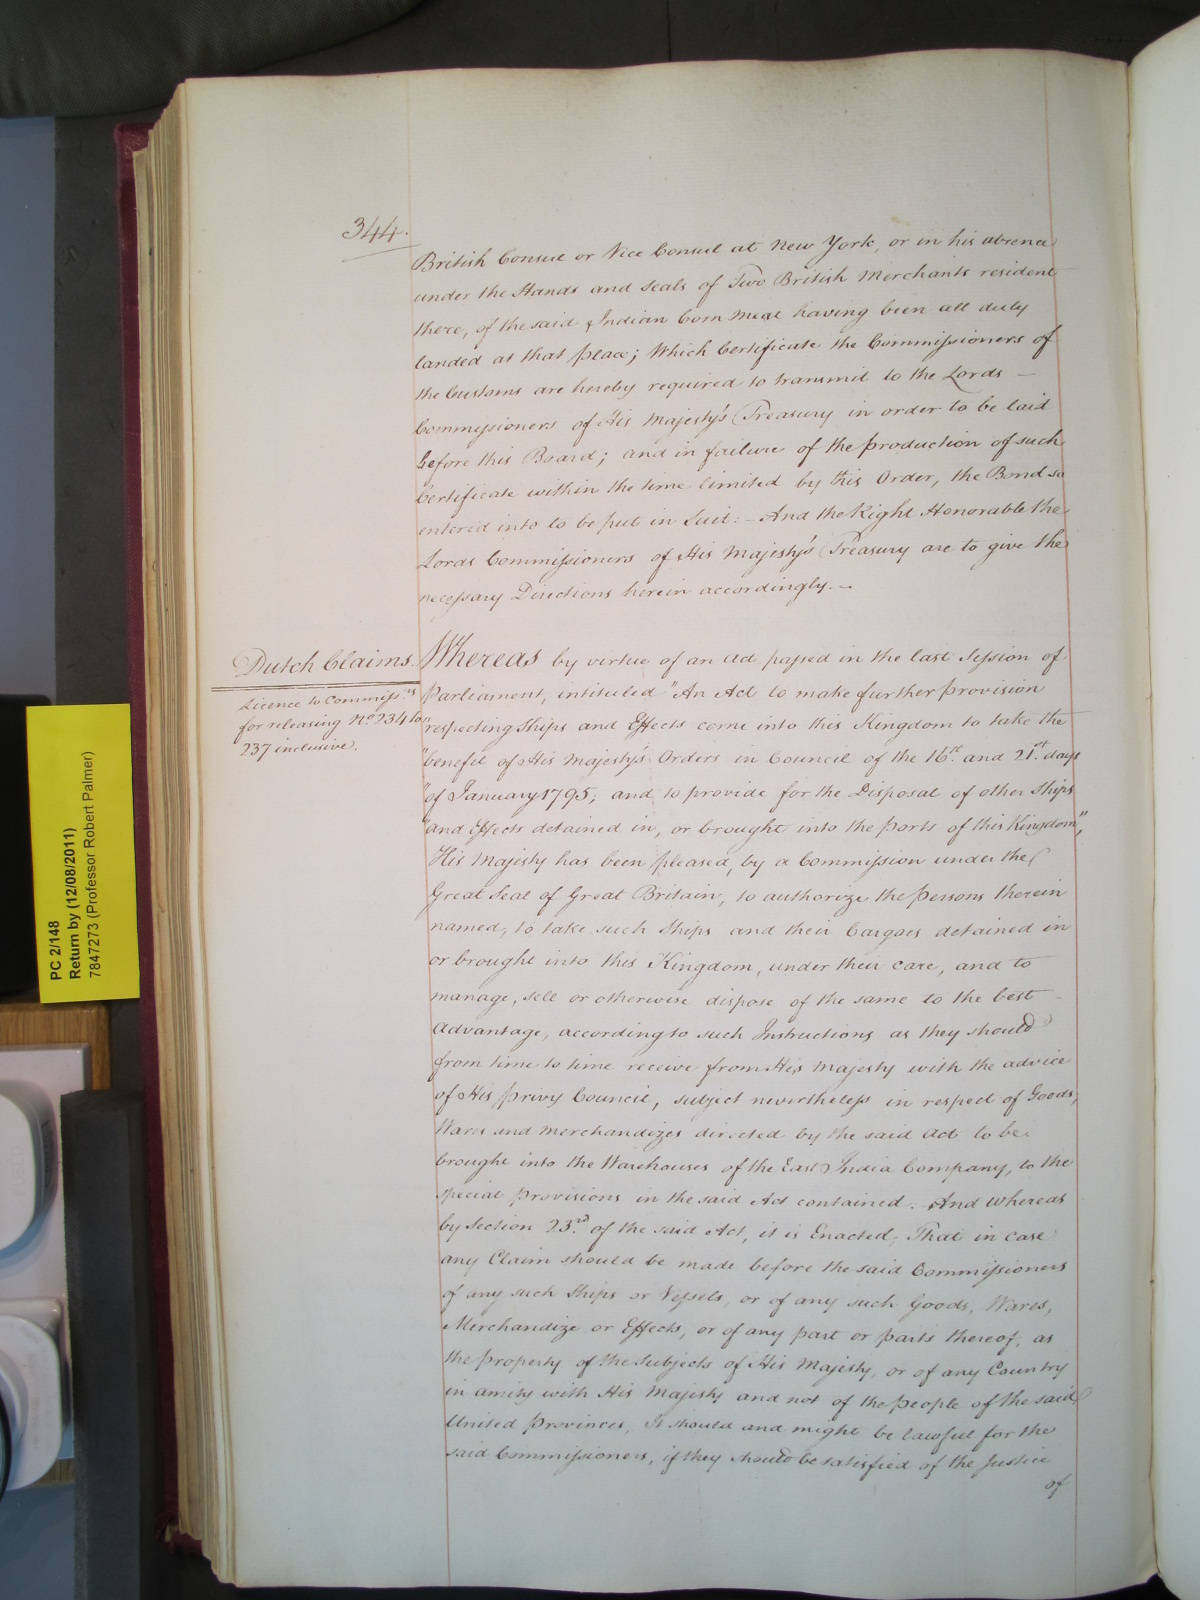 344.
British Consul or Vice Consul at New York, or in his absence
under the Hands and Seals of Two British Merchants resident
there, of the said Indian Corn Meal having been all duly
landed at that place; Which Certificate the Commissioners of
the Customs are hereby required to transmit to the Lords —
Commissioners of His Majesty's Treasury in order to be laid
before this Board; and in failure of the production of such
Certificate within the time limited by this Order, the Bond so
entered into to be put in Suit: — And the Right Honorable the
Lords Commissioners of His Majesty's Treasury are to give the
necessary Directions herein accordingly. —
Dutch Claims.
Licence to Commiss.rs
for releasing No. 234 to
237 inclusive.
Whereas by virtue of an Act passed in the last Session of
Parliament, intituled "An Act to make further provision
"respecting Ships and Effects come into this Kingdom to take the
"benefit of His Majesty's Orders in Council of the 16.st and 21.st days
"of January 1795; and to provide for the Disposal of other Ships
"and Effects detained in, or brought into the ports of this Kingdom",
His Majesty has been pleased, by a Commission under the
Great Seal of Great Britain, to authorize the persons therein
named, to take such Ships and their Cargoes detained in
or brought into this Kingdom, under their care, and to
manage, sell or otherwise dispose of the same to the best —
Advantage, according to such Instructions as they should
from time to time receive from His Majesty with the advice
of His privy Council, subject nevertheless in respect of Goods,
Wares and Merchandizes directed by the said Act to be
brought into the Warehouses of the East India Company, to the
special provisions in the said Act contained. And whereas
by Section 23.rd of the said Act, it is Enacted, That in case
any Claim should be made before the said Commissioners
of any such Ships or Vessels, or of any such Goods, Wares,
Merchandize or Effects, or of any part or parts thereof, as
the property of the Subjects of His Majesty, or of any Country
in amity with His Majesty and not of the people of the said
United Provinces, It should and might be lawful for the
said Commissioners, if they should be satisfied of the Justice
of
PC 2/148
Return by (12/08/2011)
7847273 (Professor Robert Palmer)